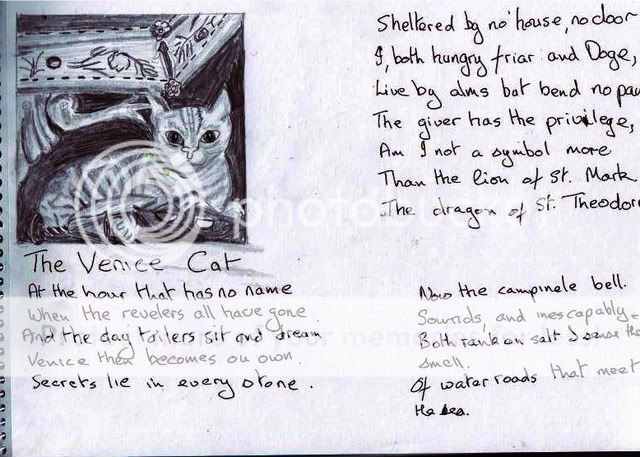 The Venice Cat
At the hour that has no name
When the revelers all have gone
And the day toilers sit and dream
Venice then becomes ou own.
Secrets lie in every stone.
Sheltered by no house, no door
I, both hungry friar and Doge,
Live by alms but bend no paw
The giver has the privilege,
Am I not a symbol more
Than the lion of St. Mark
The dragon of St. Theodore
Now the campinele bell.
Sounds and inescapably
Both rank on salt I sense the
smell.
Of water roads that meet
the sea.
photobucket